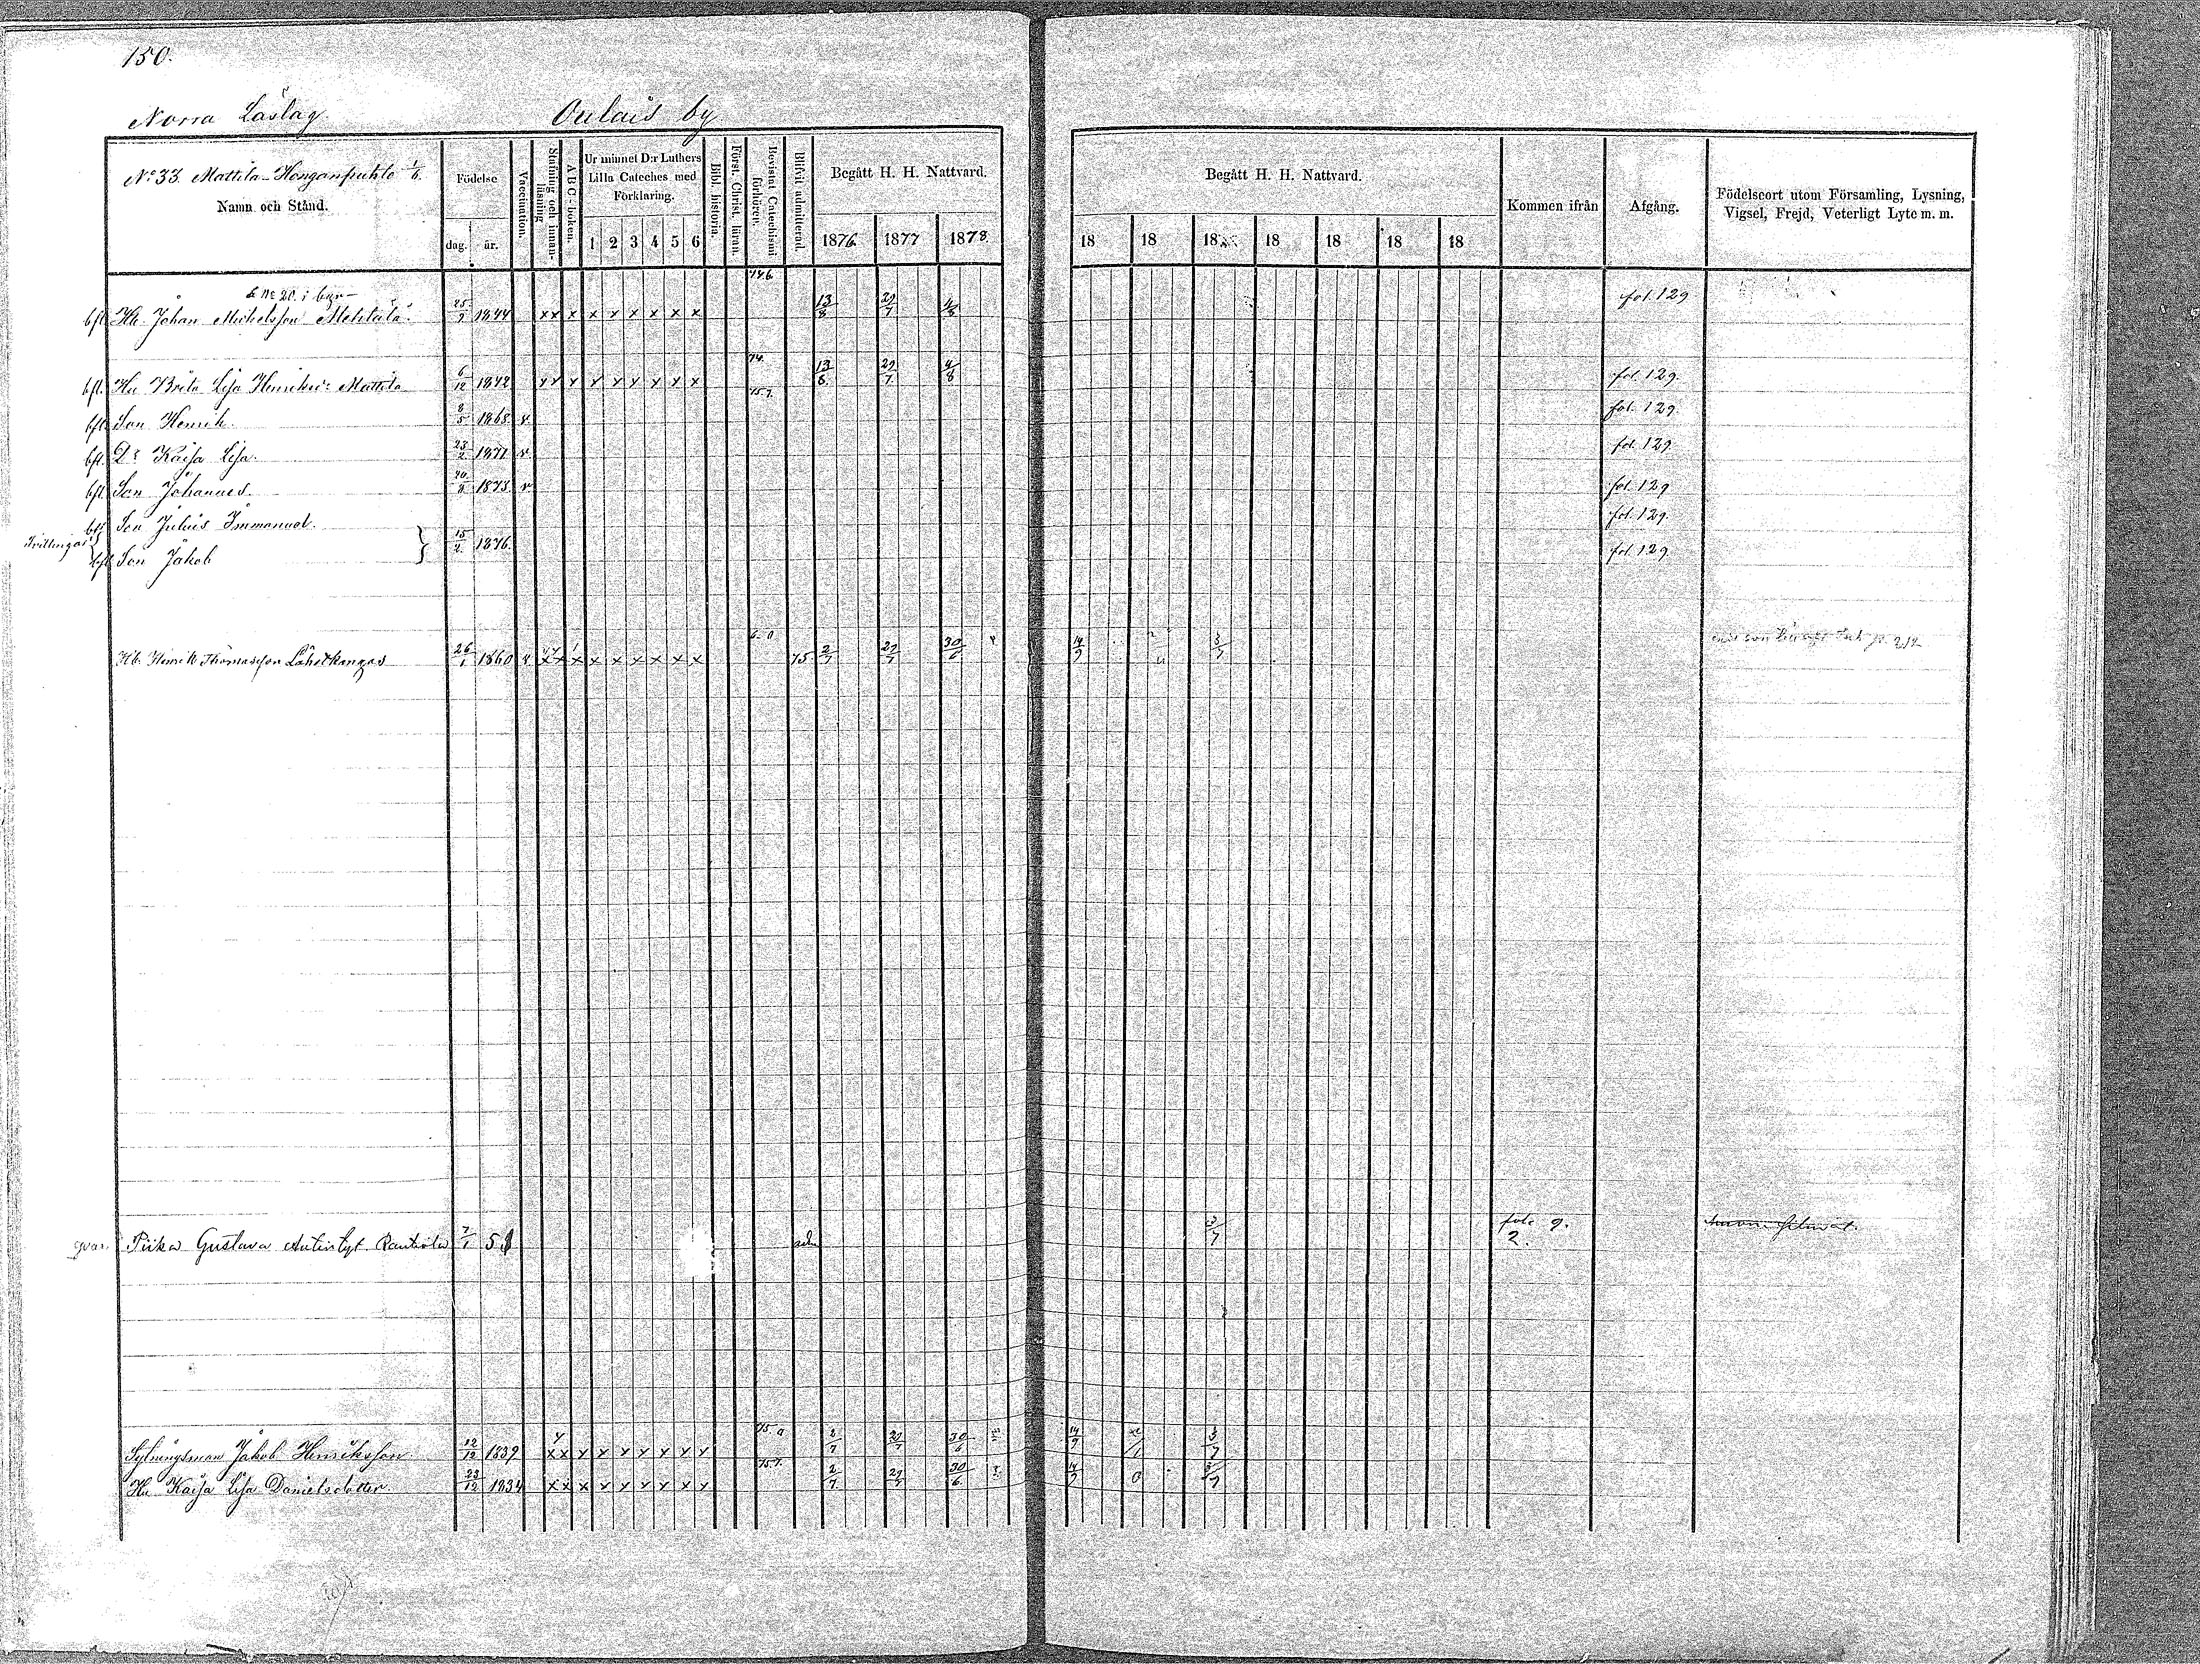 150.
Norra Läslag. Oulais by
No 33. Mattila-Honganpuhto 1/6.
Namn och Stånd.
Födelse
dag. år.
Vaccination.
Stafning och innanläsning
A B C-boken.
Ur minnet D:r Luthers Lilla Cateches med Förklaring.
1 2 3 4 5 6
Bibl. historia.
Först. Christ. läran.
Bevistat Catechismi förhören.
Blifvit admitterad.
Begått H. H. Nattvard.
1876 1877 1878
Begått H. H. Nattvard.
18 18 18 18 18 18 18
Kommen ifrån
Afgång.
Födelseort utom Församling, Lysning, Vigsel, Frejd, Veterligt Lyte m. m.
bft. Johan Michelsson 25/9 1844 x x x x x x x x x 13/8 29/7 4/8 fol. 129
bft. Hu Brita Lisa Henriksdr Mattila 6/12 1842 x x x x x x x x x 74. 75.7. 13/8 29/7 4/8 fol. 129.
bft. Son Henrik. 8/5 1868 v fol. 129.
bft. Dr Kaisa Lisa. 23/2 1871 v fol. 129
bft. Son Johannes. 1873 v fol. 129
bft. Son Julius Immanuel. fol. 129.
Tvillingar } 15/2 1876.
bft. Son Jakob fol. 129
Henrik Thomasson Lähetkangas 26/1 1860 v x x x x x x x x x 75. 2/7 29/7 30/6 14/9 3/7
Piika Gustava 7/1 51 adm 3/7 9. 2.
Sytningsman Jakob Henriksson 12/12 1839 x x x x x x x x x 75. 2/7 29/7 30/6 14/9 3/7
Hu Kaisa Lisa Danielsdotter. 23/12 1834 x x x x x x x x x 75.7. 2/7 29/7 30/6 14/9 3/7